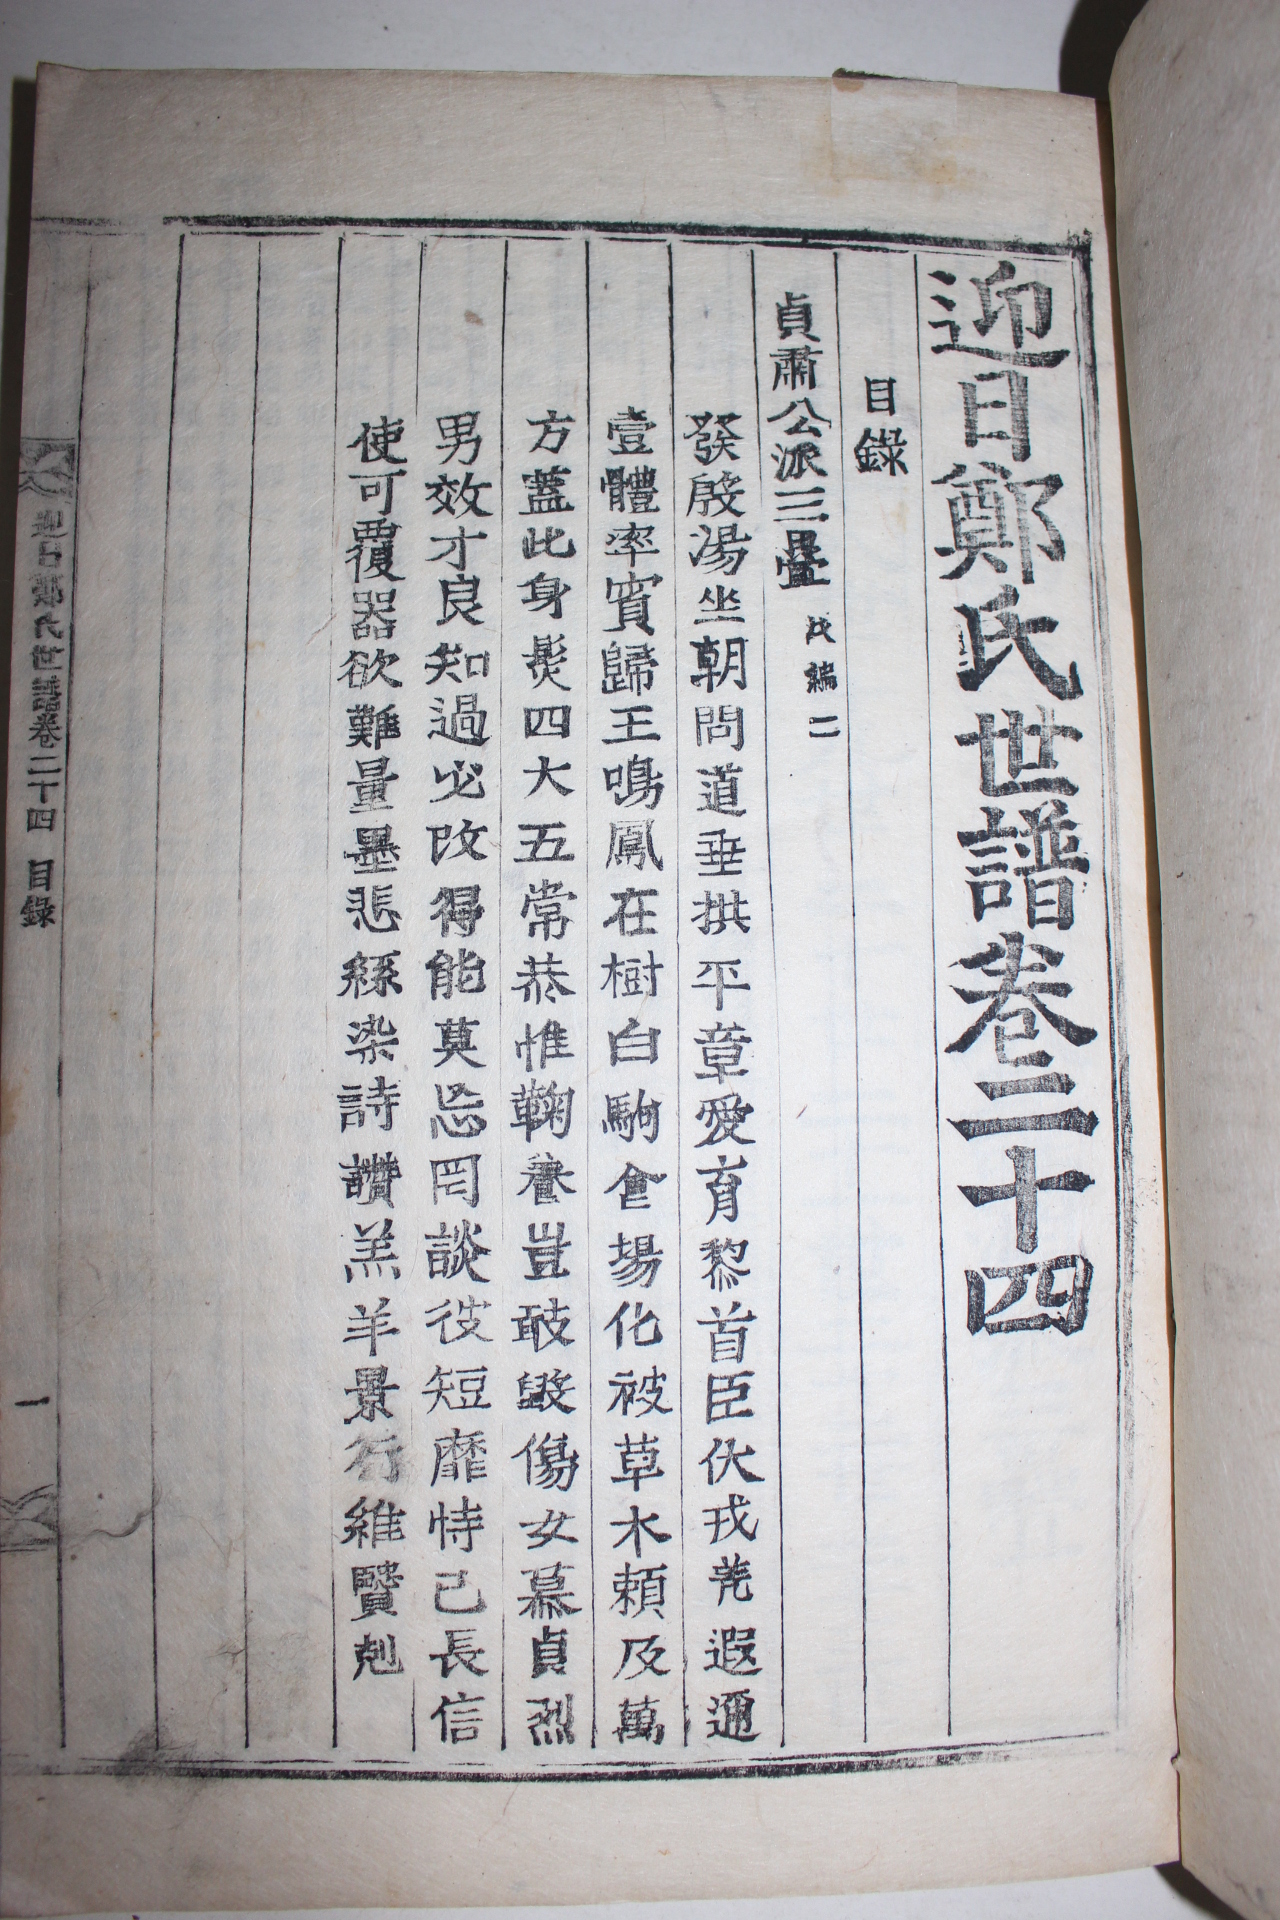 迎日鄭氏世譜卷二十四
目錄
貞肅公派三疊 戊編二
發殷湯坐朝問道垂拱平章愛育黎首臣伏戎羌遐邇
壹體率賓歸王鳴鳳在樹白駒食場化被草木賴及萬
方蓋此身髮四大五常恭惟鞠養豈敢毀傷女慕貞烈
男效才良知過必改得能莫忘罔談彼短靡恃己長信
使可覆器欲難量墨悲絲染詩讚羔羊景行維賢剋
迎日鄭氏世譜卷二十四 目錄 一